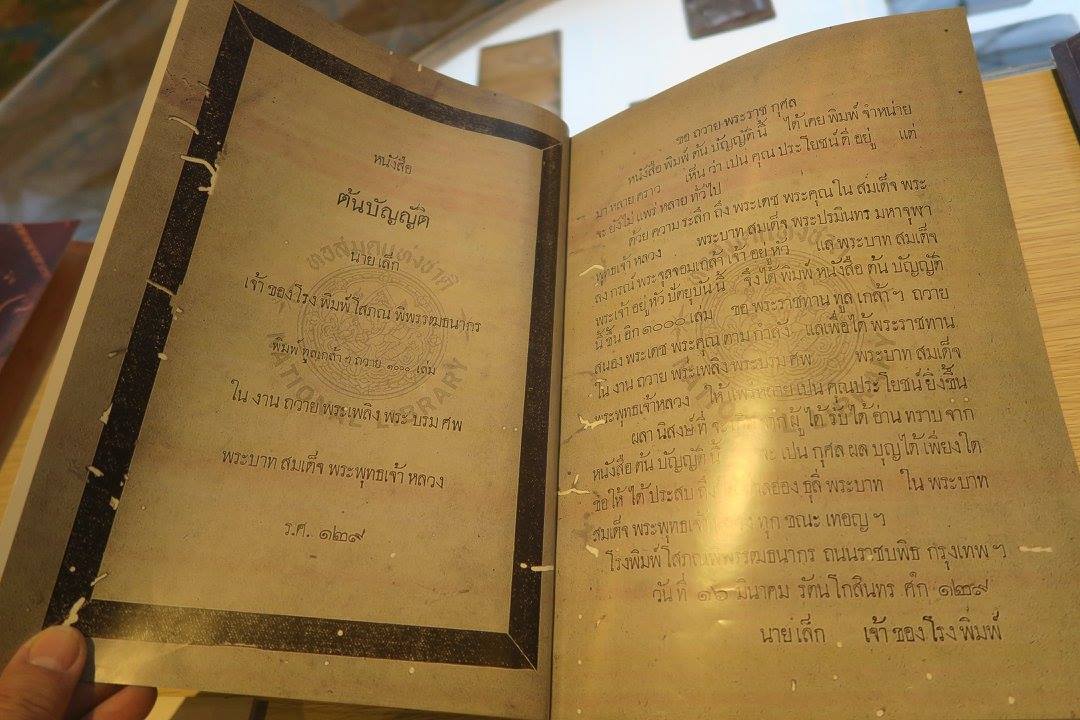 หนังสือ
ต้นบัญญัติ
นายเล็ก
เจ้า ของโรง พิมพ์ โสภณ พิพรรฒธนากร
พิมพ์ ทูลเกล้า ฯ ถวาย ๑๐๐๐ เล่ม
ใน งาน ถวาย พระเพลิง พระ บรม ศพ
พระบาท สมเด็จ พระพุทธเจ้า หลวง
ร.ศ. ๑๒๙
หอสมุดแห่งชาติ
NATIONAL LIBRARY
ขอ ถวาย พระราช กุศล
หนังสือ พิมพ์ ต้น บัญญัติ นี้ ได้ เคย พิมพ์ จำหน่าย
มา หลาย คราว เห็น ว่า เปน คุณ ประโยชน์ ดี อยู่ แต่
จะ ยังไม่ แพร่ หลาย ทั่วไป
ด้วย ความ ระลึก ถึง พระเดช พระคุณ ใน สมเด็จ พระ
พุทธเจ้า หลวง พระบาท สมเด็จ พระปรมินทร มหาจุฬา
ลง กรณ์ พระจุลจอมเกล้า เจ้า อยู่ หัว แล พระบาท สมเด็จ
พระเจ้า อยู่ หัว ปัตยุบัน นี้ จึงได้ พิมพ์ หนังสือ ต้น บัญญัติ
นี้ ขึ้น อีก ๑๐๐๐ เล่ม ขอ พระราชทาน ทูล เกล้า ฯ ถวาย
สนอง พระเดช พระคุณ ตาม กำลัง แลเพื่อได้ พระราชทาน
ใน งาน ถวาย พระเพลิง พระบรม ศพ พระบาท สมเด็จ
พระพุทธเจ้า หลวง ให้ แพร่หลาย เปน คุณประโยชน์ ยิ่งขึ้น
ผลา นิสงษ์ ที่ จะ ผู้ ได้ รับ ได้ อ่าน ทราบ จาก
หนังสือ ต้น บัญญัติ นี้ จะ เปน กุศล ผล บุญ ได้ เพียง ใด
ขอให้ ได้ ประสบ ถึง ลออง ธุลี พระบาท ใน พระบาท
สมเด็จ พระพุทธเจ้า หลวง ทุก ขณะ เทอญ ฯ
โรงพิมพ์ โสภณพิพรรฒธนากร ถนนราชบพิธ กรุงเทพ ฯ
วัน ที่ ๑๖ มีนาคม รัตน โกสินทร ศก ๑๒๙
นาย เล็ก เจ้า ของ โรง พิมพ์